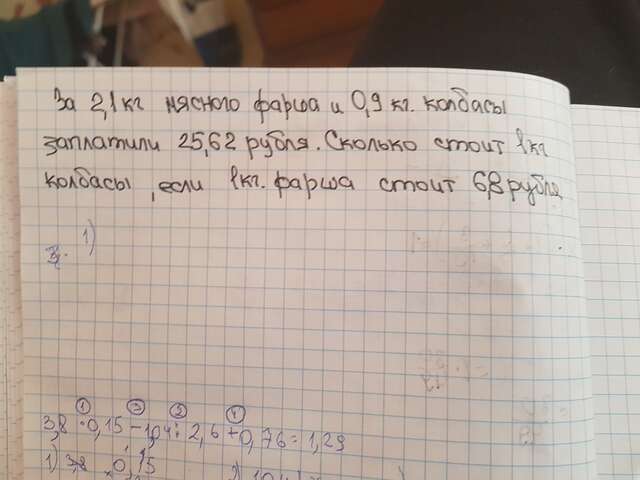 За 2,1 кг мясного фарша и 0,9 кг. колбасы
заплатили 25,62 рубля. Сколько стоит 1кг
колбасы, если 1кг. фарша стоит 6,8 рубля
1)
3,8 · 0,15 - 1,04 : 2,6 + 0,76 = 1,29
1) 3,8 0,15